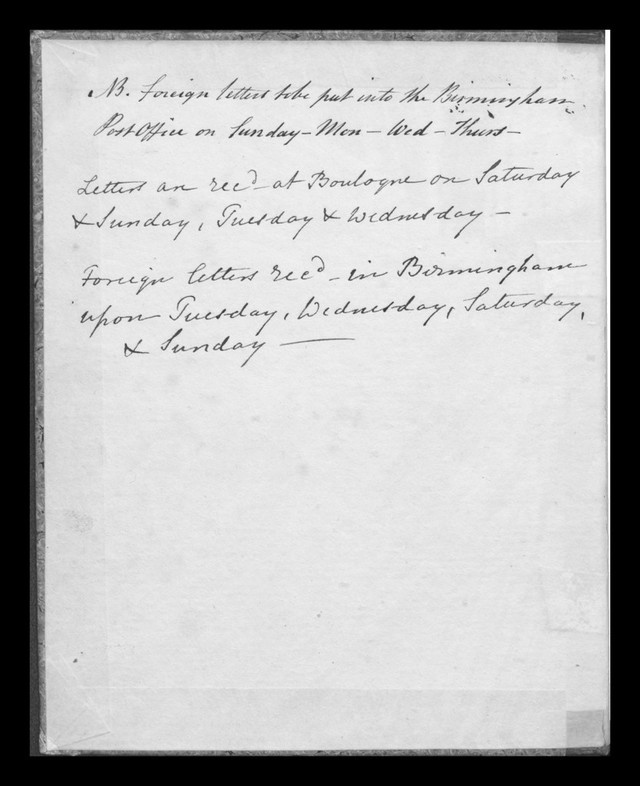 NB. Foreign letters to be put into the Birmingham
Post Office on Sunday - Mon - Wed - Thurs -
Letters are recd - at Boulogne on Saturday
& Sunday, Tuesday & Wednesday -
Foreign letters recd - in Birmingham
upon Tuesday, Wednesday, Saturday,
& Sunday —